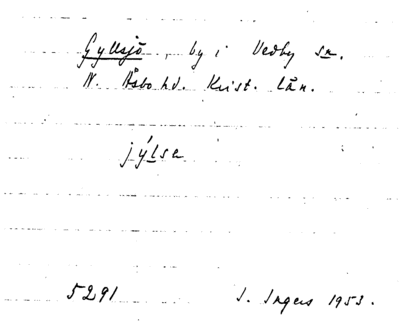 Gyllsjö, by i Vedby sn.
N. Åsbo hd. Krist. län.
jýlsa
5291 I. Ingers 1953.